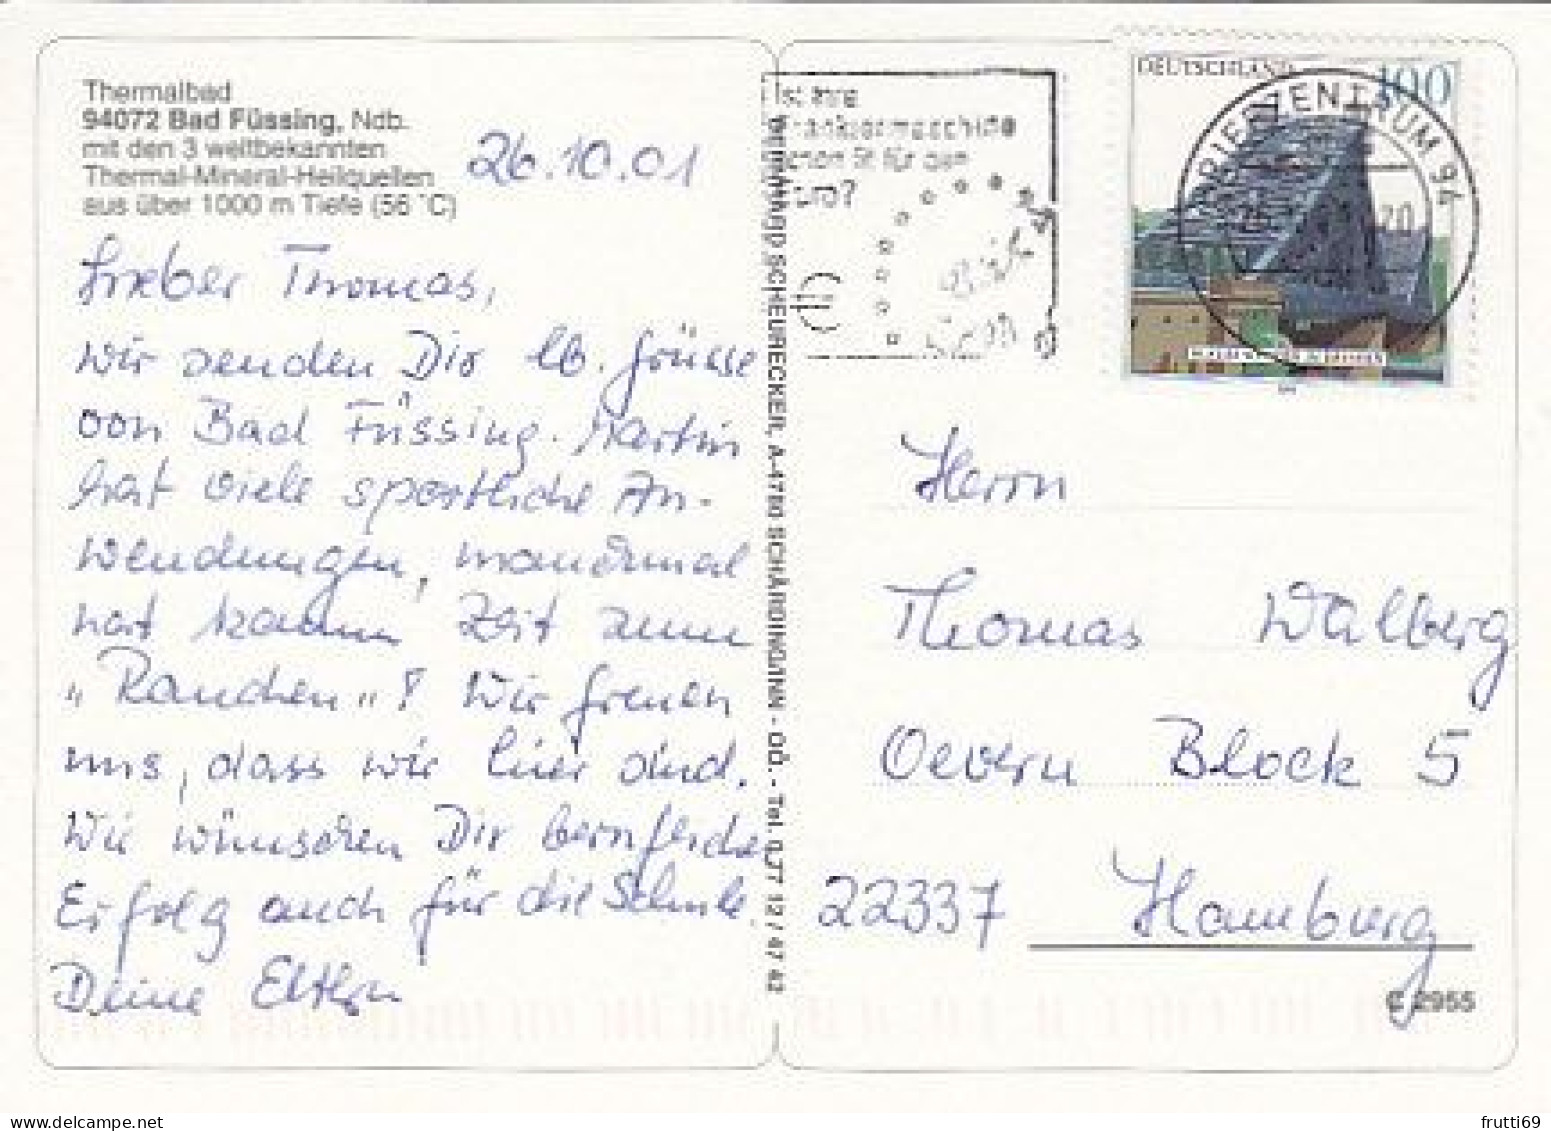 Thermalbad
94072 Bad Füssing, Ndb.
mit den 3 weltbekannten
Thermal-Mineral-Heilquellen
aus über 1000 m Tiefe (56 °C)
26.10.01
Lieber Thomas,
wir senden Dir lb. Grüsse
von Bad Füssing. Martin
hat viele sportliche An-
wendungen, manchmal
hat kaum Zeit zum
"Rauchen"! Wir freuen
uns, dass wir hier sind.
Wir wünschen Dir
Erfolg auch für die Schule.
Deine Eltern
BERNHARD SCHEURECKER, A-4780 SCHÄRDING/INN - OÖ. - Tel. 0 77 12 / 47 42
Ist Ihre
Frankiermaschine
schon fit für den
Euro?
DEUTSCHLAND 100
BRIEFZENTRUM 94
Herrn
Thomas Walberg
Oevern Block 5
22337 Hamburg
C 2955
frutti69